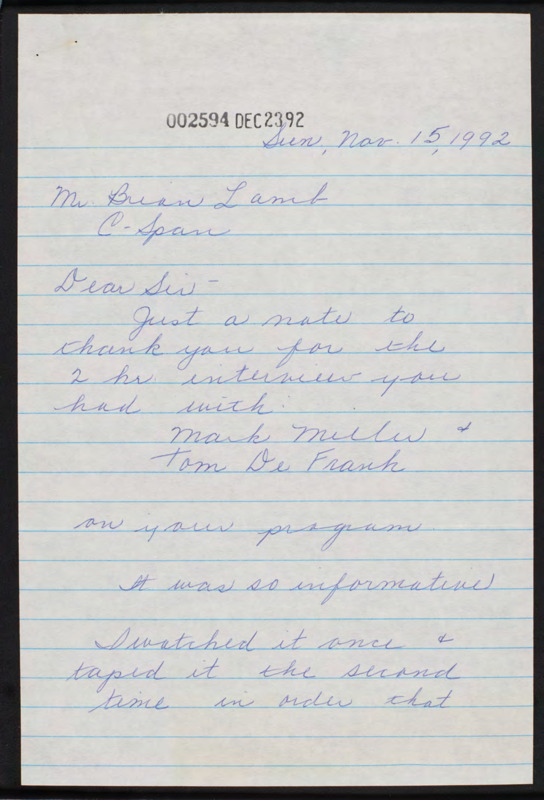 002594 DEC2392
Sun, Nov. 15, 1992
Mr. Brian Lamb
C-Span
Dear Sir -
Just a note to
thank you for the
2 hr. interview you
had with:
Mark Miller &
Tom De Frank
on your program
It was so informative
I watched it once &
taped it the second
time in order that